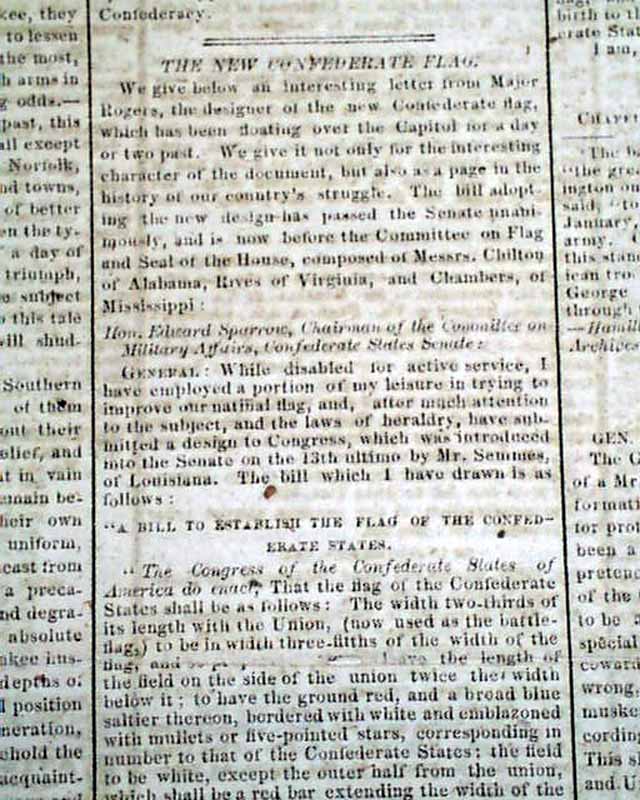 Confederacy.
THE NEW CONFEDERATE FLAG.
We give below an interesting letter from Major
Rogers, the designer of the new Confederate flag,
which has been floating over the Capitol for a day
or two past. We give it not only for the interesting
character of the document, but also as a page in the
history of our country's struggle. The bill adopt-
ing the new design has passed the Senate unani-
mously, and is now before the Committee on Flag
and Seal of the House, composed of Messrs. Chilton
of Alabama, Rives of Virginia, and Chambers, of
Mississippi:
Hon. Edward Sparrow, Chairman of the Committee on
Military Affairs, Confederate States Senate:
GENERAL: While disabled for active service, I
have employed a portion of my leisure in trying to
improve our natinal flag, and, after much attention
to the subject, and the laws of heraldry, have sub-
mitted a design to Congress, which was introduced
into the Senate on the 13th ultimo by Mr. Semmes,
of Louisiana. The bill which I have drawn is as
follows:
"A BILL TO ESTABLISH THE FLAG OF THE CONFED-
ERATE STATES.
"The Congress of the Confederate States of
America do enact, That the flag of the Confederate
States shall be as follows: The width two-thirds of
its length with the Union, (now used as the battle-
flag,) to be in width three-fifths of the width of the
flag, and so have the length of
the field on the side of the union twice the width
below it; to have the ground red, and a broad blue
saltier thereon, bordered with white and emblazoned
with mullets or five-pointed stars, corresponding in
number to that of the Confederate States; the field
to be white, except the outer half from the union,
which shall be a red bar extending the width of the
kee, they
to lessen
the most,
h arms in
g odds.—
past, this
all except
Norfolk,
nd towns,
of better
en the ty-
a day of
triumph,
e subject
o this tale
will shud-
Southern
of them
out their
elief, and
at in vain
emain be-
heir own
uniform,
cast from
a preca-
nd degra-
absolute
nkee hus-
depths of
position
neration,
ehold the
acquaint-
birth to th
erate Stat
I am,
CHAPT
"The ba
"the gre
ington on
said, "to
January,
army. (
this stand
ican troo
George
through t
—Hamil
Archives
GEN.
The G
of a Mr.
formati
tor pro
been a
pretenc
of the
to be a
special
cowar
wrong,
musket
cording
This sl
and U